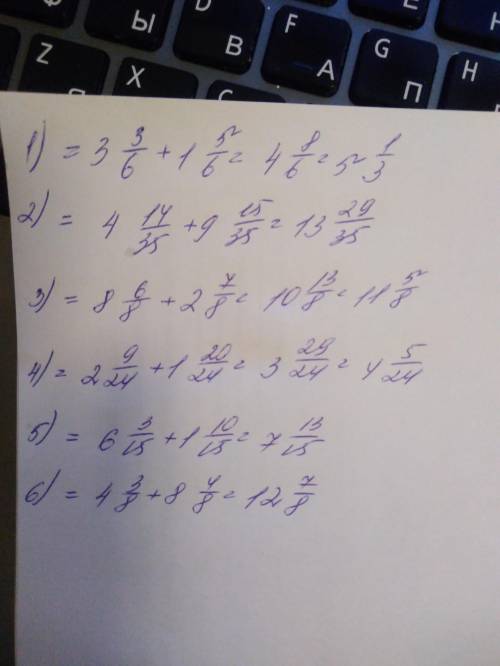 Ы D F E
Z X B А G П Н
1) = 3 3/6 + 1 5/6 = 4 8/6 = 5 1/3
2) = 4 14/35 + 9 15/35 = 13 29/35
3) = 8 6/8 + 2 7/8 = 10 13/8 = 11 5/8
4) = 2 9/24 + 1 20/24 = 3 29/24 = 4 5/24
5) = 6 3/15 + 1 10/15 = 7 13/15
6) = 4 3/8 + 8 4/8 = 12 7/8